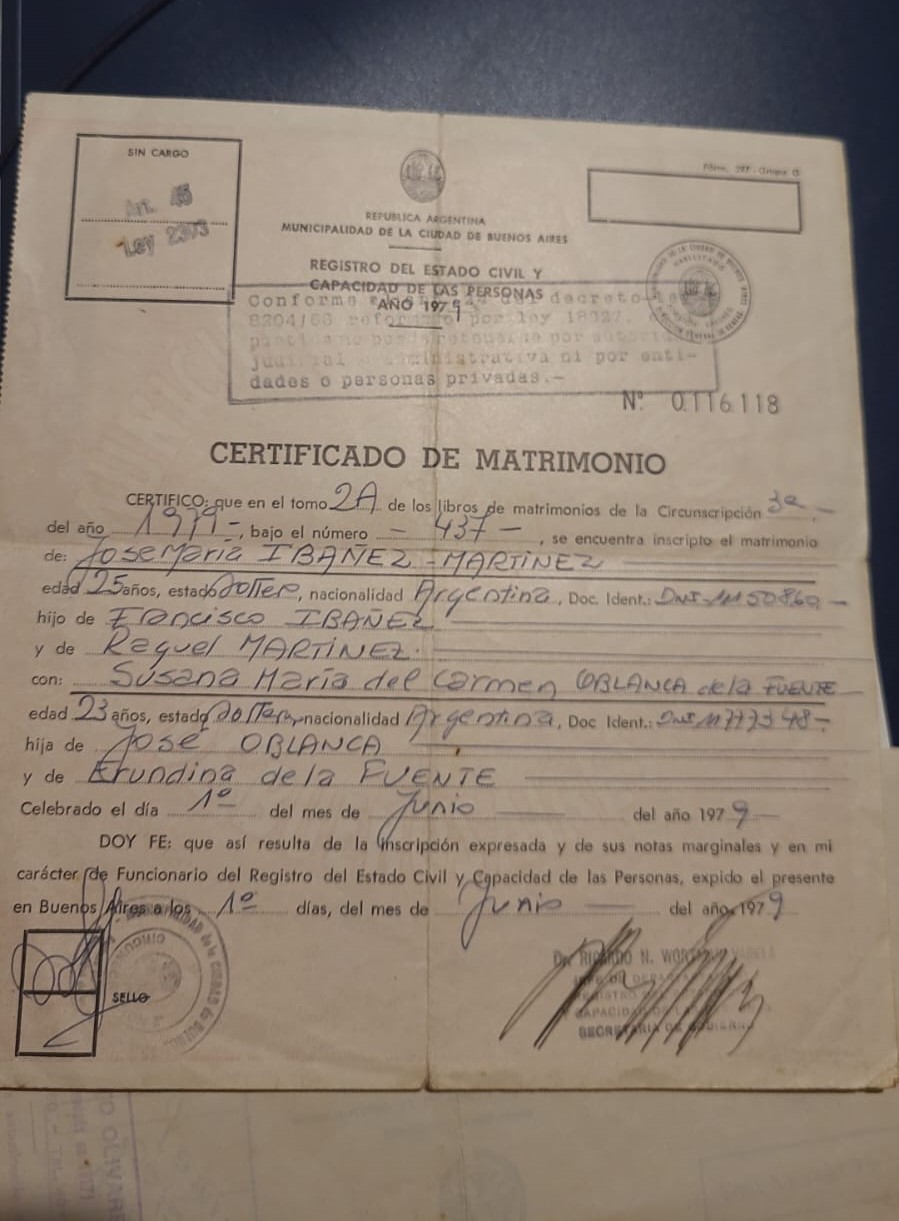 SIN CARGO
Art. 45
Ley 2393
Fórm. 297 - Grupo G
REPUBLICA ARGENTINA
MUNICIPALIDAD DE LA CIUDAD DE BUENOS AIRES
REGISTRO DEL ESTADO CIVIL Y
CAPACIDAD DE LAS PERSONAS
AÑO 1979
Conforme decreto
8204/63 por ley 18327.
por
judicial administrativa ni por enti-
dades o personas privadas.-
Nº 0116118
CERTIFICADO DE MATRIMONIO
CERTIFICO: que en el tomo 2A de los libros de matrimonios de la Circunscripción 3a -
del año 1979-, bajo el número - 437 -, se encuentra inscripto el matrimonio
de: Jose Maria IBAÑEZ - MARTINEZ
edad 25 años, estado soltero, nacionalidad Argentina, Doc. Ident.: DNI
hijo de Francisco IBAÑEZ
y de Raquel MARTINEZ.
con: Susana María del Carmen OBLANCA de la FUENTE
edad 23 años, estado soltera, nacionalidad Argentina, Doc Ident.: DNI
hija de José OBLANCA
y de Erundina de la FUENTE
Celebrado el día 1º del mes de Junio del año 1979 -
DOY FE: que así resulta de la inscripción expresada y de sus notas marginales y en mi
carácter de Funcionario del Registro del Estado Civil y Capacidad de las Personas, expido el presente
en Buenos Aires a los 1º días, del mes de Junio - del año 1979
SELLO
Dr. RICARDO N.
REGISTRO
CAPACIDAD
SECRETARIA DE GOBIERNO